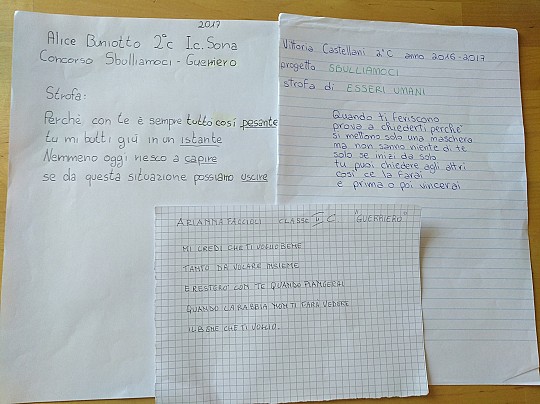 2017
Alice Buniotto 2°c I.c. Sona
Concorso Sbulliamoci - Guerriero
Strofa:
Perchè con te è sempre tutto così pesante
tu mi butti giù in un istante
Nemmeno oggi riesco a capire
se da questa situazione possiamo uscire
Vittoria Castellani 2°C anno 2016-2017
progetto SBULLIAMOCI
strofa di ESSERI UMANI
Quando ti feriscono
prova a chiederti perchè
si mettono solo una maschera
ma non sanno niente di te
solo se inizi da solo
tu puoi chiedere agli altri
così ce la farai
e prima o poi vincerai
ARIANNA FACCIOLI CLASSE II C "GUERRIERO"
MI CREDI CHE TI VOGLIO BENE
TANTO DA VOLARE INSIEME
E RESTERÒ CON TE QUANDO PIANGERAI
QUANDO LA RABBIA NON TI FARÀ VEDERE
IL BENE CHE TI VOGLIO.